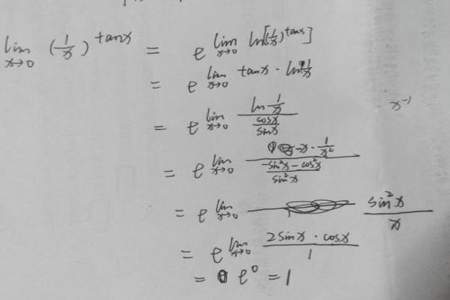 lim x→0 (1/x)^tanx = e^lim x→0 ln[(1/x)^tanx]
= e^lim x→0 tanx · ln 1/x
= e^lim x→0 (ln 1/x)/(cosx/sinx) x^-1
= e^lim x→0 (-x · 1/x²)/((-sin²x - cos²x)/sin²x)
= e^lim x→0 sin²x/x
= e^lim x→0 (2sinx · cosx)/1
= e^0 = 1